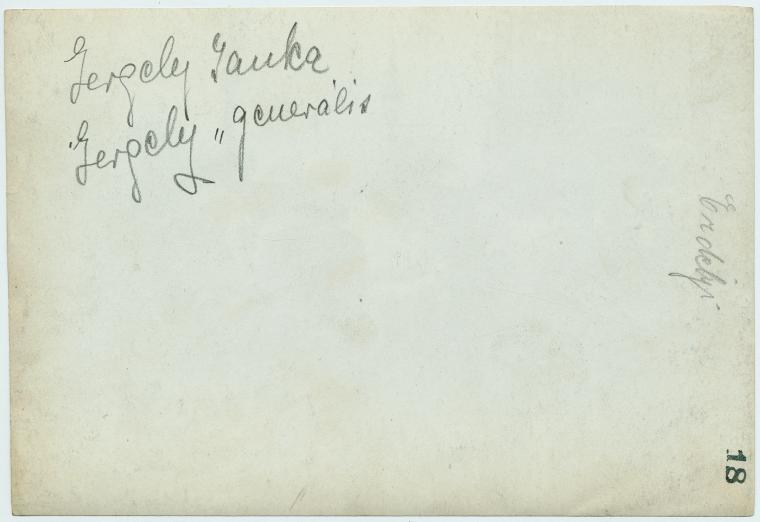 Gergely Janka
Gergely „generális
Erdélyi
18